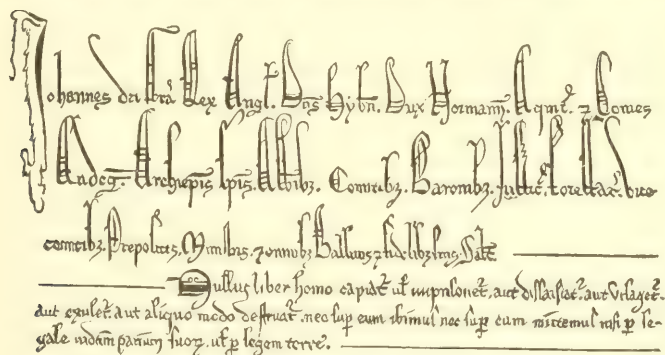 Johannes Dei gra Rex Angl. Dns Hybn. Dux Normann. Aquit. ⁊ Comes
Andeg. Archiepis Epis. Abbibz. Comitibz. Baronibz. Justic. Forestar. Vice
comitibz. Prepositis. Ministris. ⁊ omnibz Ballivis ⁊ fidelibz suis. Salt.
Nullus liber homo capiat ul imprisonet. aut dissaisiat. aut utlaget.
aut exulet. aut aliquo modo destruat. nec sup eum ibimus nec sup eum mittemus nisi p le-
gale iudicium parium suor. ul p legem terre.